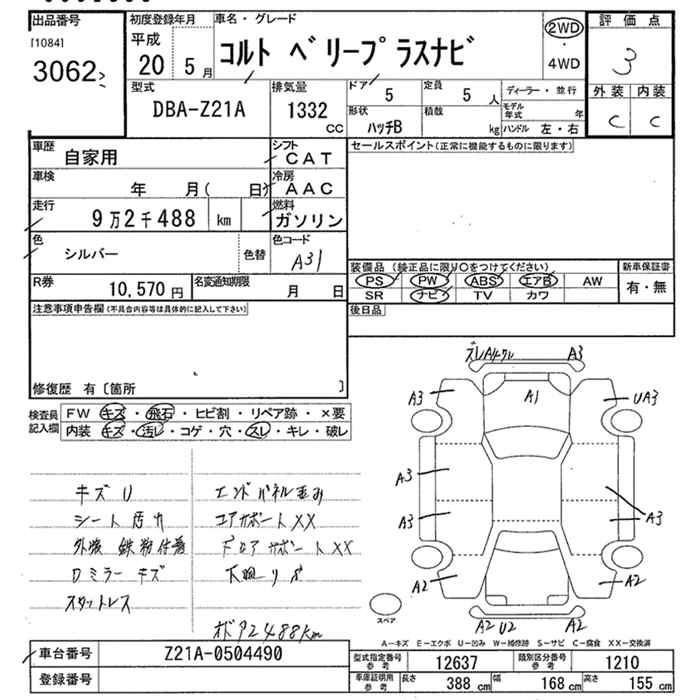 出品番号
[1084]
3062
初度登録年月
平成
20 5月
車名・グレード
コルト ベリープラスナビ
2WD
・
4WD
評価点
3
外装 内装
C C
型式
DBA-Z21A
排気量
1332
CC
ドア
5
定員
5 人
ディーラー・並行
モデル
年式 年
形状
ハッチB
積載
kg
ハンドル 左・右
車歴
自家用
シフト
CAT
車検
年 月( 日)
冷房
AAC
走行
9万2千488 km
燃料
ガソリン
色
シルバー
色替
色コード
A31
R券
10,570 円
名変通知期限
月 日
セールスポイント(正常に機能するものに限ります)
装備品 (純正品に限り○をつけてください)
新車保証書
PS PW ABS エアB AW
有・無
SR ナビ TV カワ
後日品
注意事項申告欄(不具合内容等は具体的に記入して下さい)
修復歴 有〔箇所 〕
検査員
記入欄
FW キズ・飛石・ヒビ割・リペア跡・×要
内装 キズ・汚レ・コゲ・穴・スレ・キレ・破レ
キズU
シート汚れ
外装 鉄粉付着
ロミラーキズ
スタットレス
エンドパネル歪み
コアサポートXX
下廻りサ
メタ2488km
A3
A3
A1
UA3
A3
A3
A3
A2
A2
A2 U2
A2
スペア
A-キズ E-エクボ U-凹み W-補修跡 S-サビ C-腐食 XX-交換済
車台番号
Z21A-0504490
登録番号
型式指定番号
参考
12637
類別区分番号
参考
1210
車庫証明用
参考
長さ
388 cm
幅
168 cm
高さ
155 cm